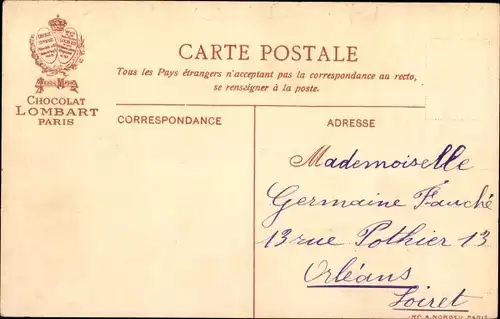 CARTE POSTALE
Tous les Pays étrangers n'acceptant pas la correspondance au recto,
se renseigner à la poste.
CHOCOLAT
LOMBART
PARIS
CORRESPONDANCE
ADRESSE
Mademoiselle
Germaine Fauché
13 rue Pothier 13
Orléans
Loiret
IMP. A. NORGEU PARIS